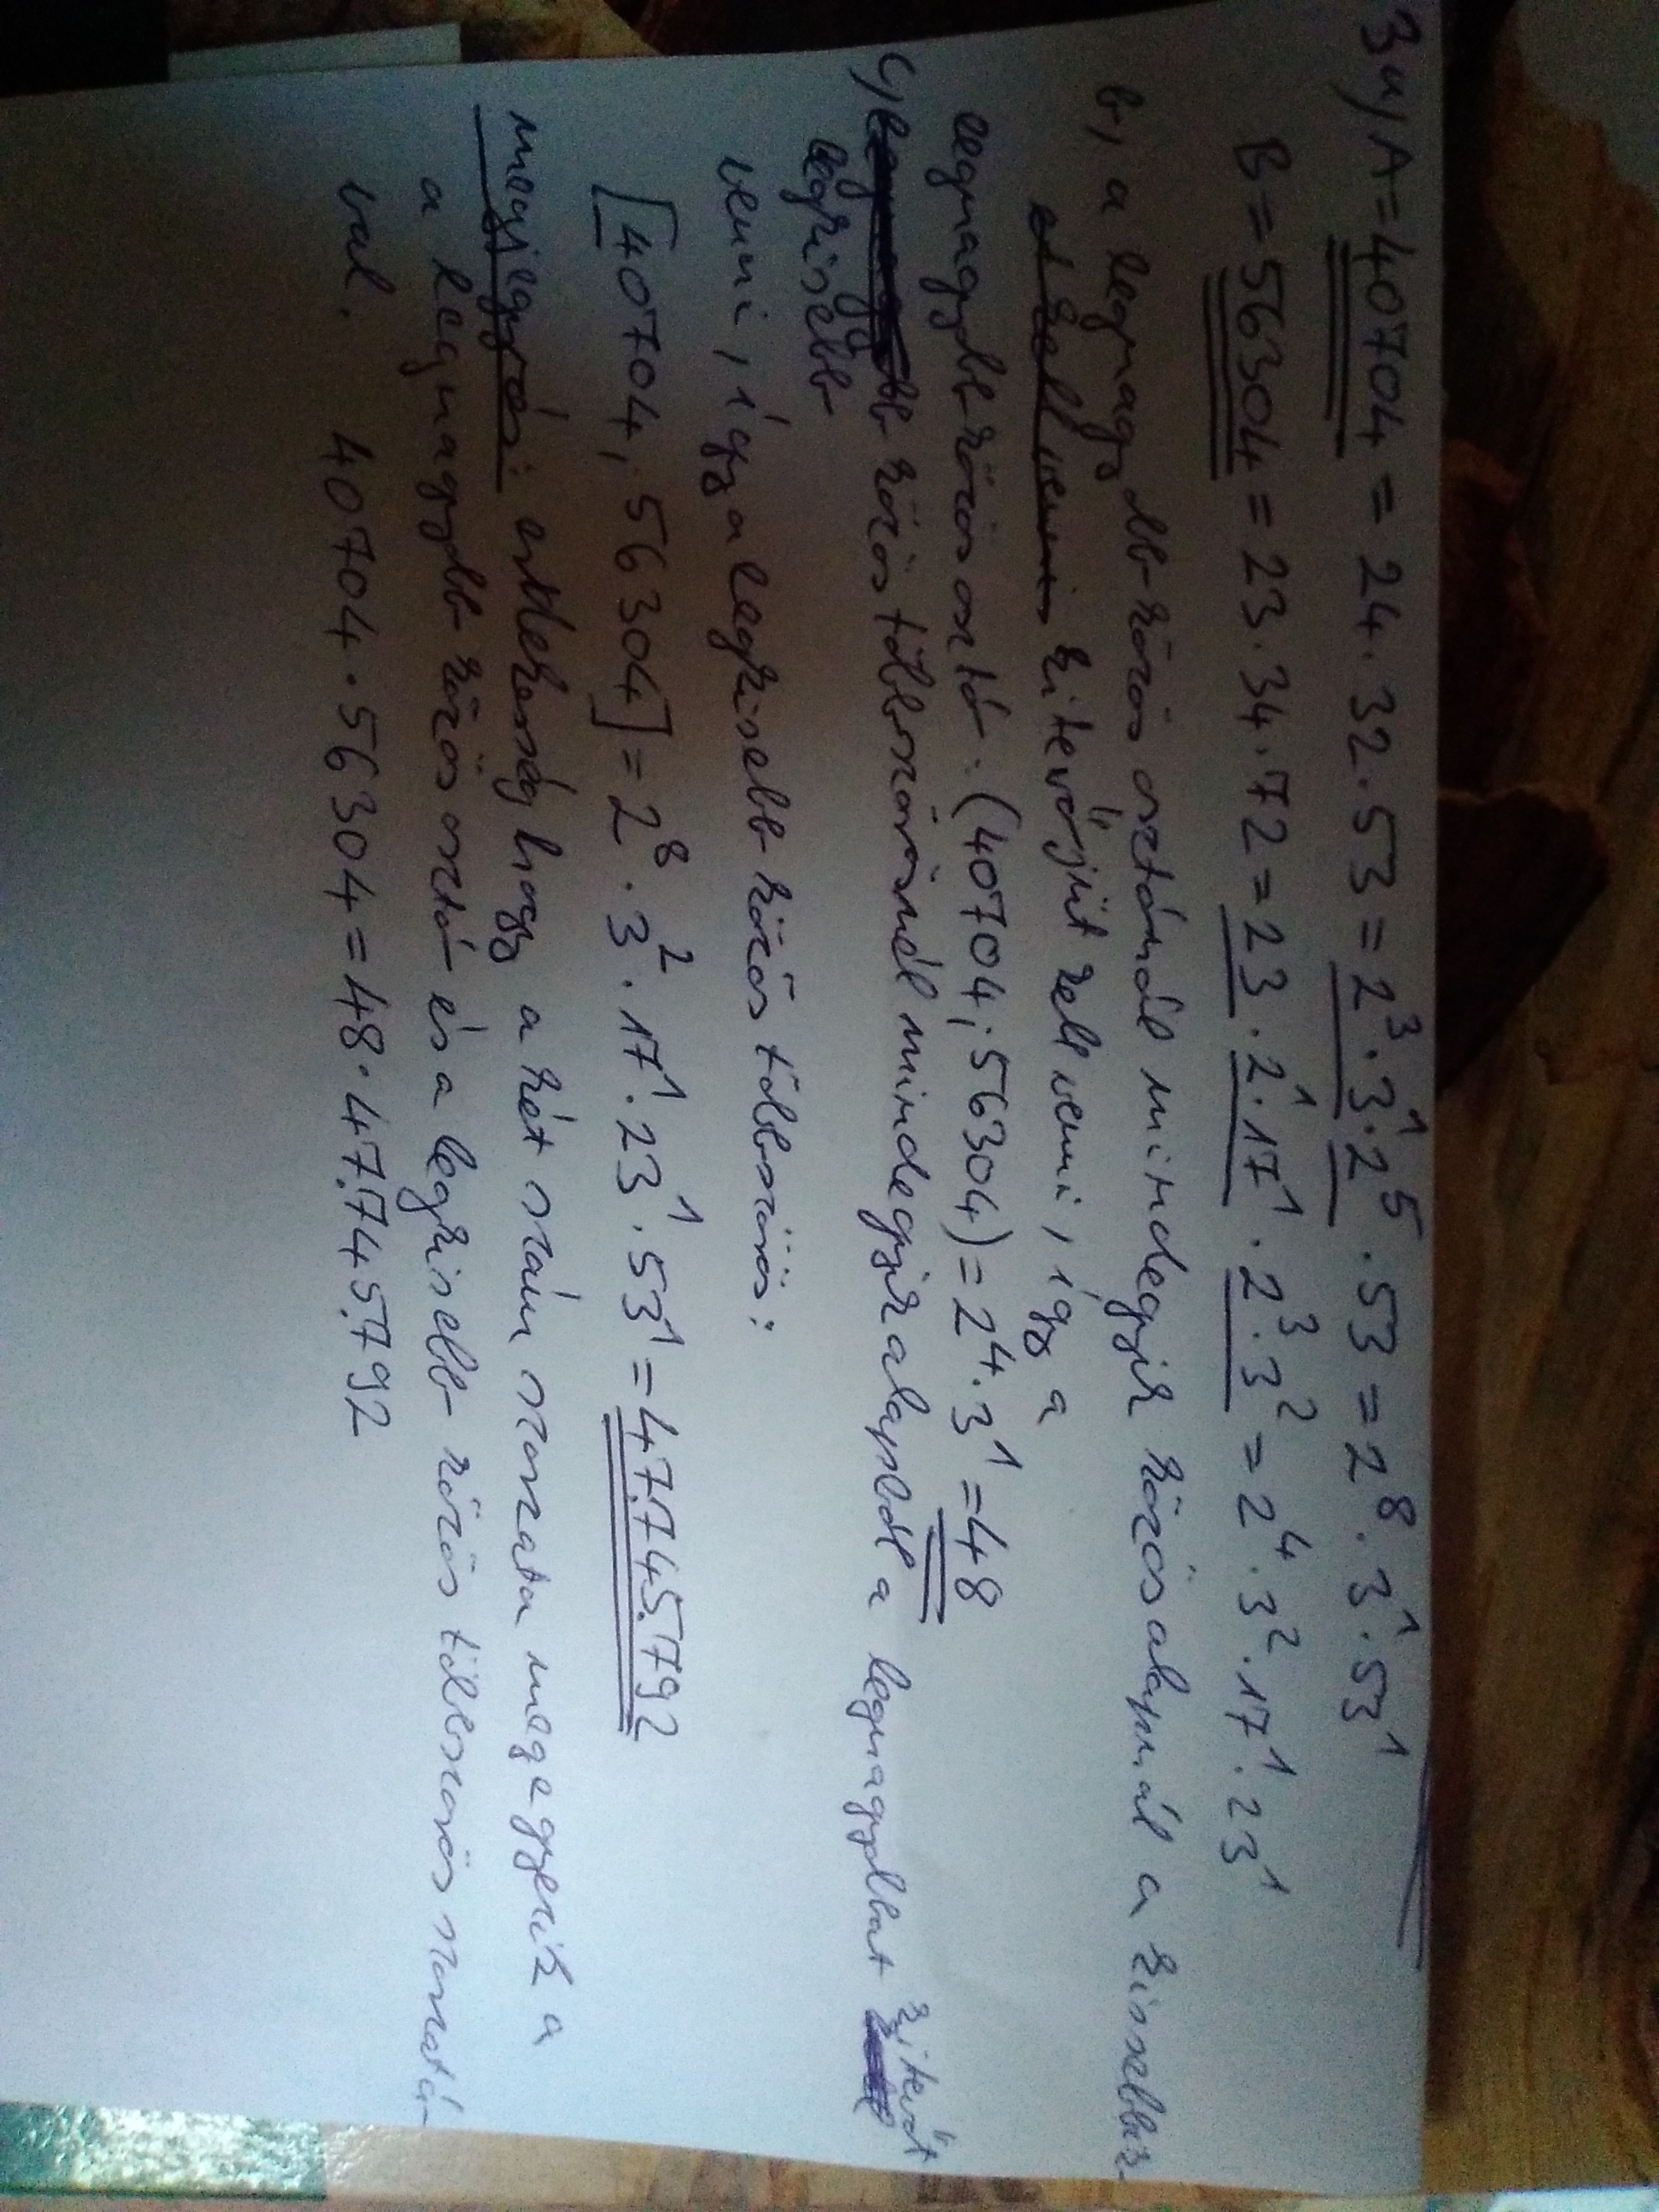 3a) A=40704 = 24·32·53 = 2³·3¹·2⁵·53 = 2⁸·3¹·53¹
B=56304 = 23·34·72 = 23·2¹·17¹·2³·3² = 2⁴·3²·17¹·23¹
b, a legnagyobb közös osztónál mindegyik közös alapnál a kisebbik
et kell venni kitevőjüt kell venni, így a
legnagyobb közös osztó: (40704; 56304) = 2⁴·3¹ = 48
c) legnagyobb közös többszörösnél mindegyik alapból a legnagyobbat kitevőt
legkisebb
venni, így a legkisebb közös többszörös:
[40704; 56304] = 2⁸·3²·17¹·23¹·53¹ = 47.745.792
megjegyzés: érdekesség hogy a két szám szorzata megegyezik a
a legnagyobb közös osztó és a legkisebb közös többszörös szorzatá-
val. 40704·56304 = 48·47.745.792